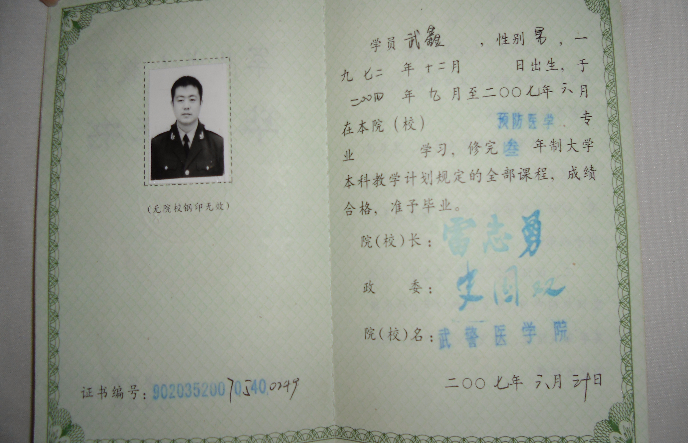 (无院校钢印无效)
证书编号:902035200705400249
学员 武鑫 ,性别 男,一
九七二 年 十二月 日出生,于
二〇〇四 年 九 月至二〇〇七年 六 月
在本院(校) 预防医学 专
业 学习,修完 叁 年制大学
本科教学计划规定的全部课程,成绩
合格,准予毕业。
院(校)长:雷志勇
政 委:
院(校)名:武警医学院
二〇〇七年 六月 三十日